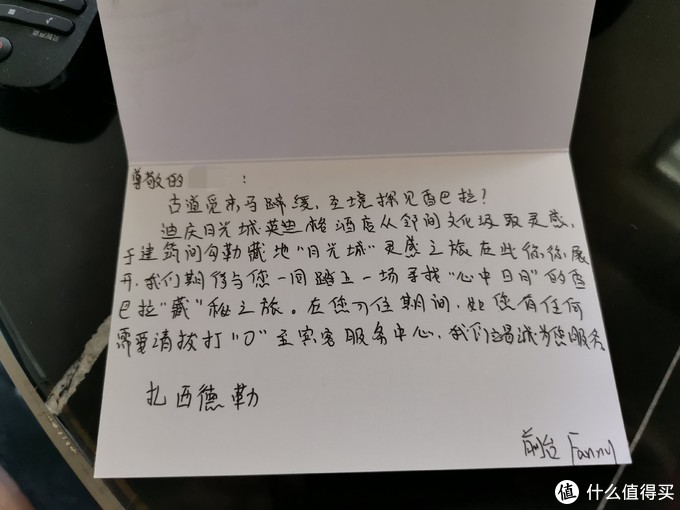 尊敬的 :
古道觅来马蹄缓,至境探见香巴拉!
迪庆月光城英迪格酒店从邻间文化汲取灵感,
于建筑间勾勒藏地"月光城"灵感之旅在此徐徐展
开,我们期待与您一同踏上一场寻找"心中日月"的香
巴拉"藏"秘之旅。在您入住期间,如您有任何
需要请拨打"0"至宾客服务中心,我们竭诚为您服务
扎西德勒
前台 Fanny
值 什么值得买